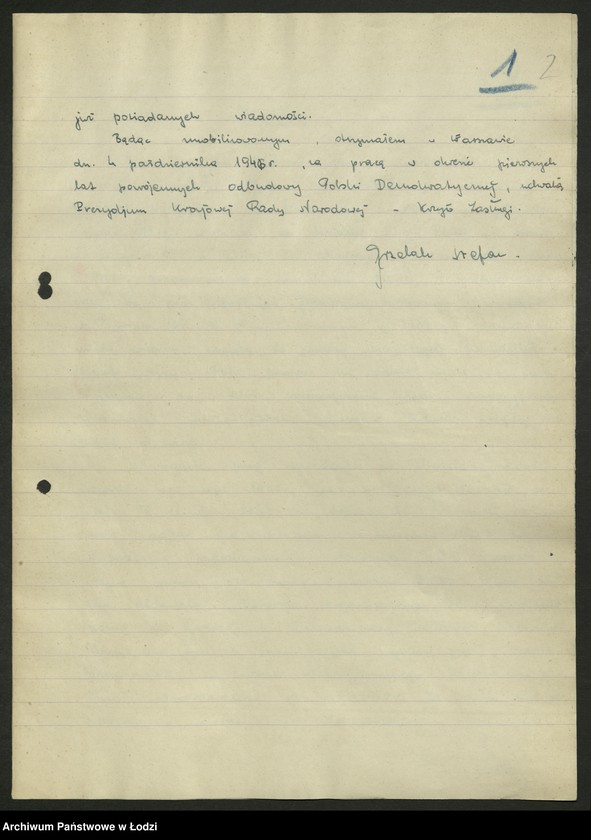 1 2
już posiadanych wiadomości.
Będąc zmobilizowanym, otrzymałem w Warszawie
dn. 4 października 1946 r. za pracę w okresie pierwszych
lat powojennych odbudowy Polski Demokratycznej, uchwałą
Prezydjum Krajowej Rady Narodowej - Krzyż Zasługi.
Grzelak Stefan.
Archiwum Państwowe w Łodzi